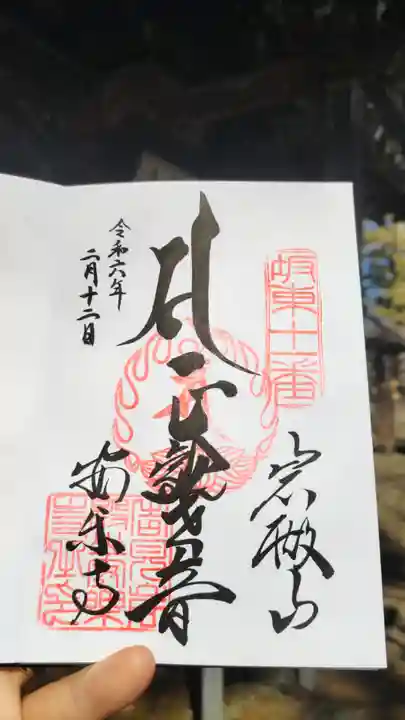 坂東十一番
岩殿山
正観世音
安樂寺
令和六年
二月十二日